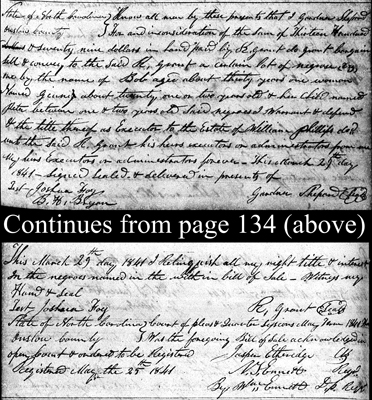 State of North Carolina } Know all men by these presents that I Gardner Shepard
Onslow County } For and in consideration of the sum of Thirteen Hundred
& seventy nine dollars in hand paid by R. Grant do grant bargain
sell & convey to the said R. Grant a certain lot of negroes
me by the name of Bob aged about thirty years one woman
named about twenty one or two years old & her child named
between one & two years old said negroes I warrant & defend
& the title thereof as Executor to the Estate of William Phillips decd
unto the said R. Grant his heirs executors or administrators from me
my heirs Executors or administrators forever - This March 29 day
1841 - Signed Sealed & delivered in presents of
Test Joshua Foy
Gardner Shepard
Continues from page 134 (above)
This March 29th day 1841 I Relinquish all my right title & interest
In the negroes named in the within bill of Sale - Witness my
Hand & Seal
Test Joshua Foy R, Grant Seal
State of North Carolina } Court of pleas & Quarter Sessions May Term 1841
Onslow County } Was the foregoing Bill of Sale acknowledged in
open Court & ordered to be Registered Jasper Etheridge Clk
Registered May the 25th 1841